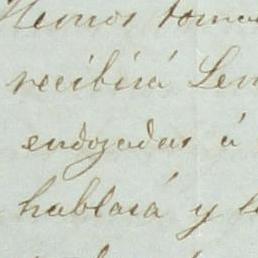 Hemos toma
recibirá Len
endozadas á
hablará y l